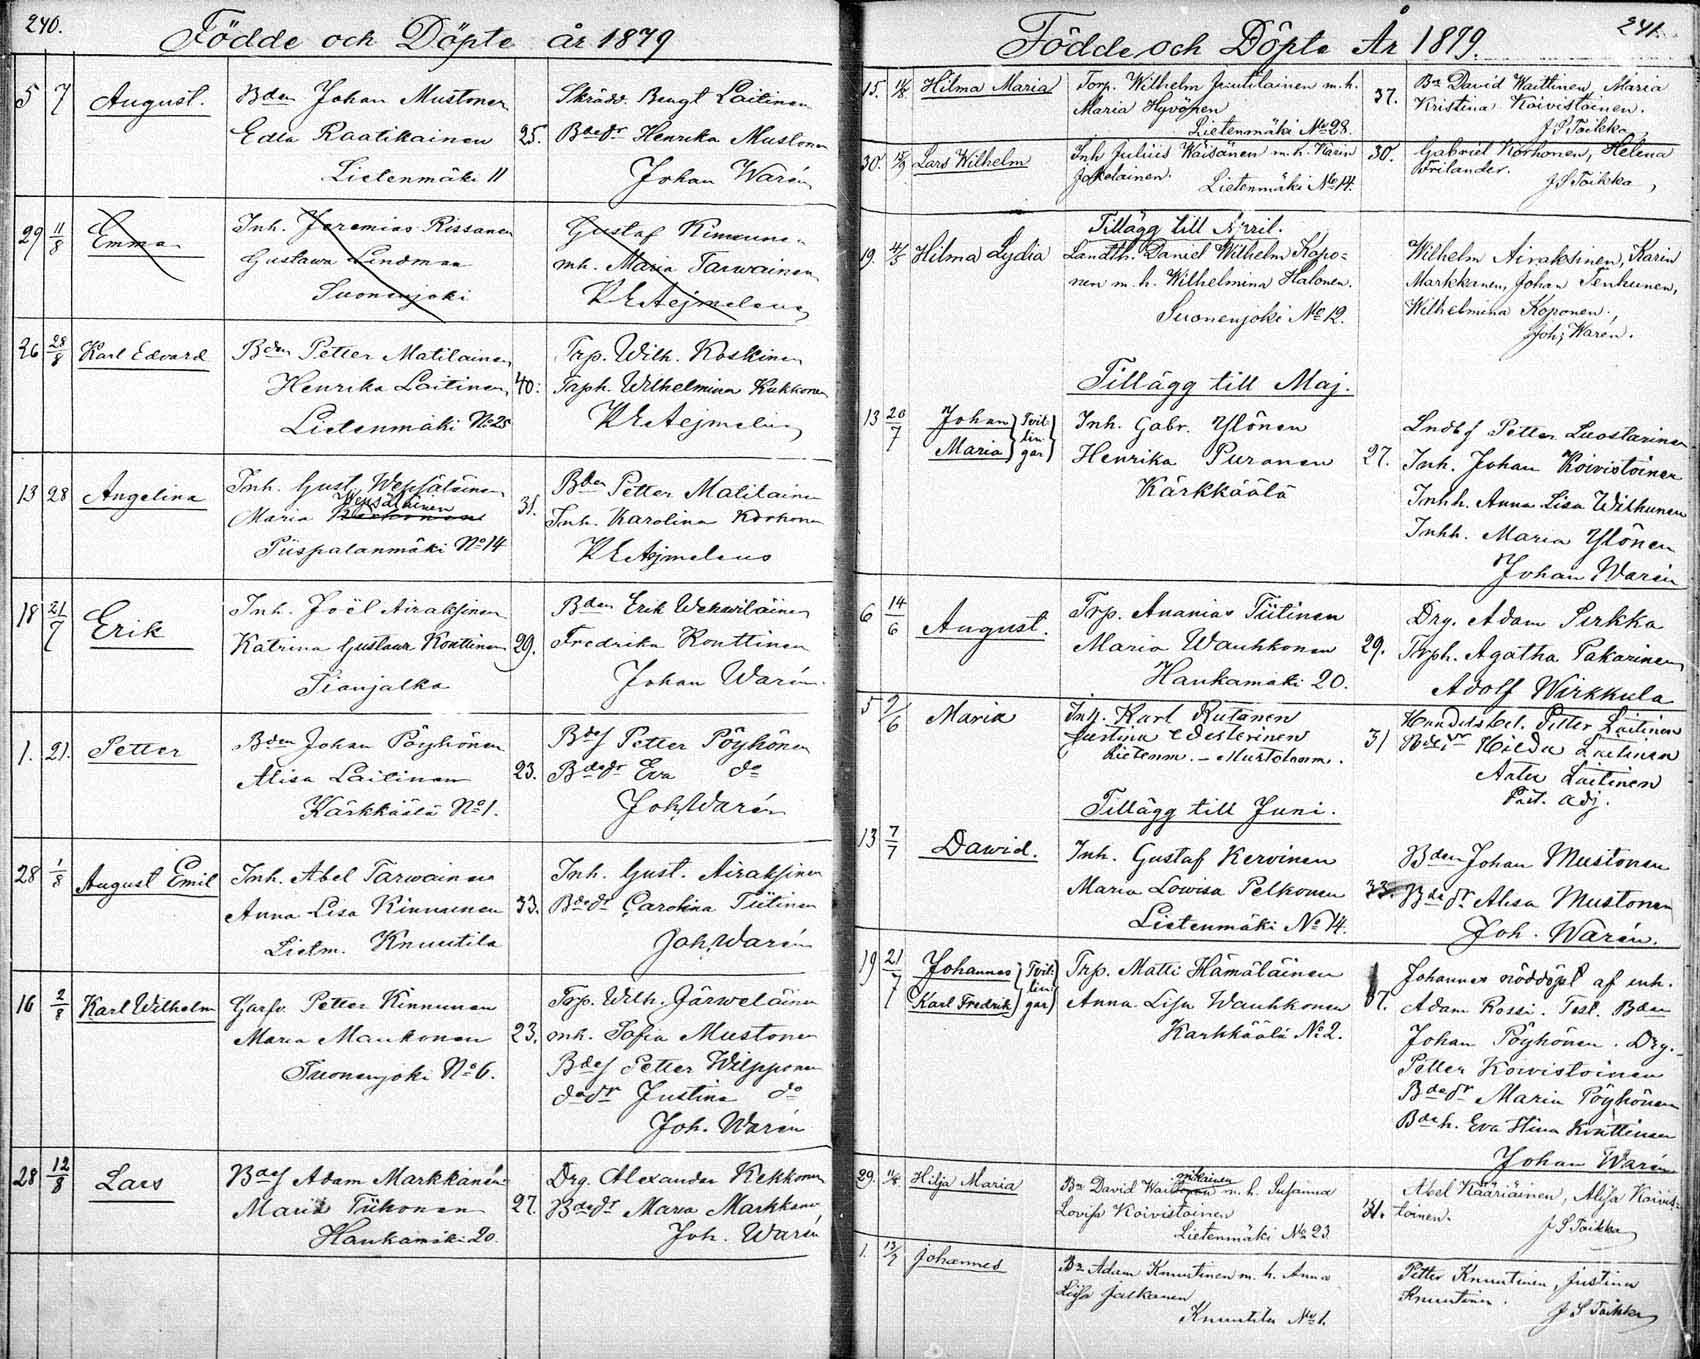 240.
Födde och Döpte år 1879
5 7 August. Bden Johan Mustonen Skrädd. Bengt Laitinen
Edla Raatikainen 25. Bdedr Henrika Mustonen
Lietenmäki 11 Johan Warén
29 11/8 Emma Inh. Jeremias Rissanen Gustaf Kinnunen
Gustawa Lindman mh. Maria Tarwainen
Suonenjoki K E Aejmelaus
26 28/8 Karl Edvard Bden Petter Matilainen Trp. Wilh. Koskinen
Henrika Laitinen 40. Trph. Wilhelmina Kukkonen
Lietenmäki No 25 K E Aejmelaus
13 28 Angelina Inh. Gust. Wepsäläinen Bden Petter Matilainen
Maria Wepsäläinen 31. Inh. Karolina Korhonen
Piispalanmäki No 14 K E Aejmelaus
18 21/7 Erik Inh. Joël Airaksinen Bden Erik Wehwiläinen
Katrina Gustawa Konttinen 29. Fredrika Konttinen
Pianjalka Johan Warén.
1. 21. Petter Bden Johan Pöyhönen Bdes Petter Pöyhönen
Alisa Laitinen 23. Bdedr Eva do
Kärkkäälä No 1. Joh. Warén
28 1/8 August Emil Inh. Abel Tarwainen Inh. Gust. Airaksinen
Anna Lisa Kinnunen 33. Bdedr Carolina Tiitinen
Lietm. Knuutila Joh. Warén
16 2/8 Karl Wilhelm Garfv. Petter Kinnunen Trp. Wilh. Järweläinen
Maria Maukonen 23. mh. Sofia Mustonen
Suonenjoki No 6. Bdes Petter Wilpponen
dodr Justina do
Joh. Warén
28 12/8 Lars Bdes Adam Markkanen Drg. Alexander Kekkonen
Maria Tiihonen 27. Bdedr Maria Markkanen
Haukamäki 20. Joh. Warén
241.
Födde och Döpte År 1879.
15. 11/8 Hilma Maria Torp. Wilhelm Juutilainen m.h. 37. Bn David Waittinen, Maria
Maria Hyvönen Kristina Koivistoinen.
Lietenmäki No 28. J S Toikka
30. Lars Wilhelm Inh Julius Wäisänen m. h. Karin 30. Gabriel Korhonen, Helena
Jalkelainen. Frilander.
Lietenmäki No 14. J S Toikka
Tillägg till April.
19. 4/5 Hilma Lydia Landth. Daniel Wilhelm Kopo= Wilhelm Airaksinen, Karin
nen m. h. Wilhelmina Halonen. Markkanen, Johan Tenhunen,
Suonenjoki No 12. Wilhelmina Koponen.
Joh; Warén.
Tillägg till Maj.
13 20/7 Johan Maria Tvil- lin- gar Inh. Gabr. Ylönen Petter Luostarinen
Henrika Puranen 27. Inh. Johan Koivistoinen
Kärkkäälä Inhh. Anna Lisa Withunen
Inhh. Maria Ylönen
Johan Warén
6 14/6 August. Trp. Ananias Tiitinen Drg. Adam Pirkka
Maria Wauhkonen 29. Trph. Agatha Pakarinen
Haukamäki 20. Adolf Wirkkula
5 2/6 Maria Inh. Karl Rutanen Petter Laitinen
Justina Westerinen 31 Hilda Laitinen
Lietenm. – Mustolanm. Antu Laitinen
Past. adj.
Tillägg till Juni.
13 7/7 Dawid. Inh. Gustaf Kervinen Bden Johan Mustonen
Maria Lowisa Pelkonen 33. Bdedr Alisa Mustonen
Lietenmäki No 14. Joh. Warén.
19 21/7 Johannes Karl Fredrik Tvil- lin- gar Trp. Matti Hämäläinen Johannes nöddöpt af enh.
Anna Lisa Wauhkonen 37. Adam Rossi. Test. Bden
Karkkäälä No 2. Johan Pöyhönen. Drg.
Petter Koivistoinen
Bdedr Maria Pöyhönen
Bdeh. Eva Stina Konttinen
Johan Warén
29. 11/8 Hilja Maria Bn David m. h. Susanna 31. Abel Kääriäinen, Alisa Koivis-
Lovisa Koivistoinen toinen.
Lietenmäki No 23. J S Toikka
1. 13/7 Johannes Bn Adam Knuutinen m. h. Anna Petter Knuutinen, Justina
Lisa Jalkanen Knuutinen.
Knuutila No 1. J S Toikka